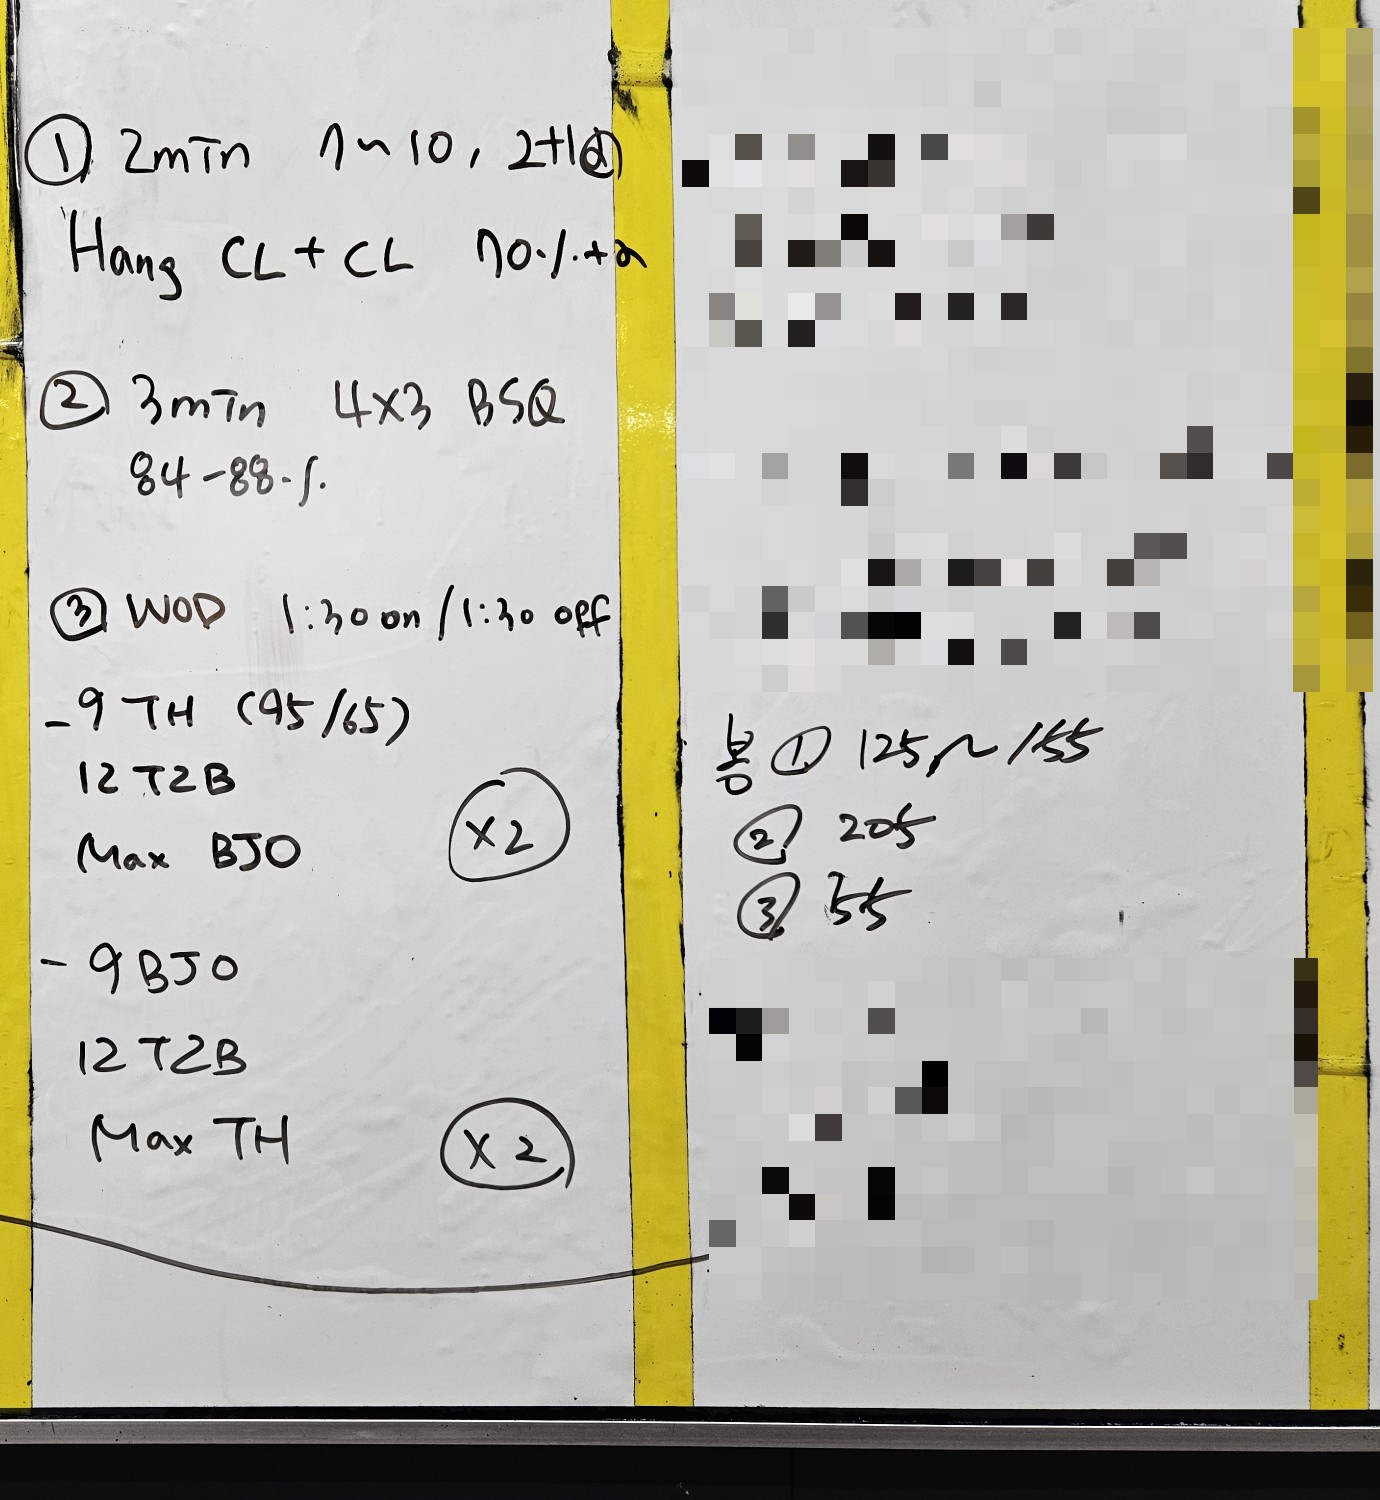 ① 2min 7~10, 2+1ⓓ
Hang CL+CL 70%+a
② 3min 4x3 BSQ
84-88%
③ WOD 1:30 on / 1:30 off
-9 TH (95/65)
12 T2B
Max BJO
x2
- 9 BJO
12 T2B
Max TH
x2
봉 ① 125~155
② 205
③ 55